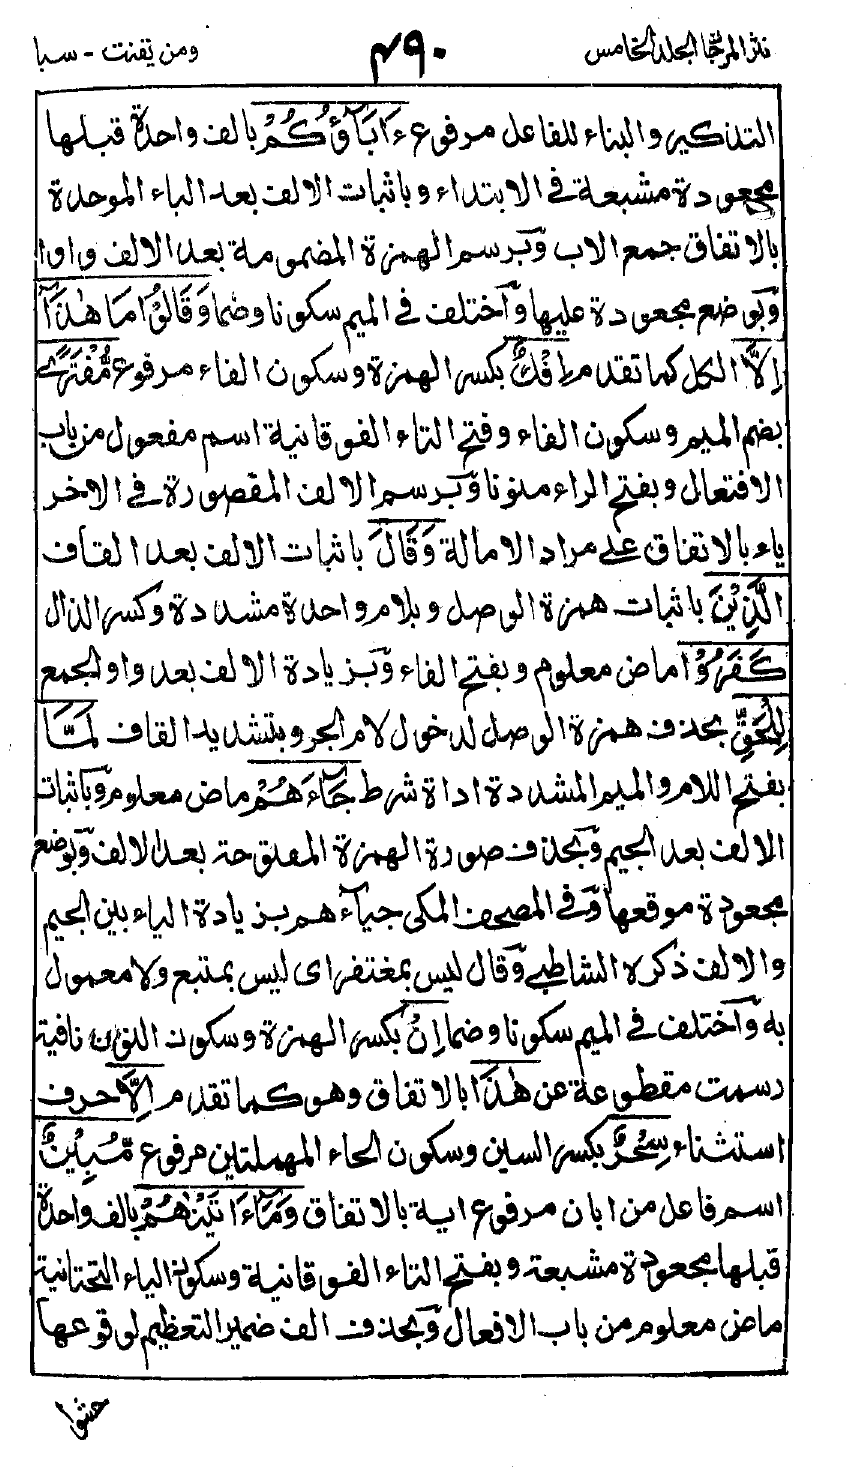 نثر المرجان المجلد الخامس
٤٩٠
ومن يقنت - سبا
التذكير والبناء للفاعل مرفوع ءَابَآؤُكُمْ بالف واحدة قبلها
مجعودة مشبعة في الابتداء وباثبات الالف بعد الباء الموحدة
بالاتفاق جمع الاب وبرسم الهمزة المضمومة بعد الالف واوا
وبوضع مجعودة عليها واختلف في الميم سكونا وضما وَقَالُوْا مَا هٰذَآ
اِلَّآ الكل كما تقدم اِفْكٌ بكسر الهمزة وسكون الفاء مرفوع مُّفْتَرًى
بضم الميم وسكون الفاء وفتح التاء الفوقانية اسم مفعول من باب
الافتعال وبفتح الراء منونا وبرسم الالف المقصورة في الاخر
ياء بالاتفاق على مراد الامالة وَقَالَ باثبات الالف بعد القاف
الَّذِيْنَ باثبات همزة الوصل وبلام واحدة مشددة وكسر الذال
كَفَرُوْا ماض معلوم وبفتح الفاء وبزيادة الالف بعد واو الجمع
لِلْحَقِّ بحذف همزة الوصل لدخول لام الجر وبتشديد القاف لَمَّا
بفتح اللام والميم المشددة اداة شرط جَآءَهُمْ ماض معلوم وباثبات
الالف بعد الجيم وبحذف صورة الهمزة المفتوحة بعد الالف وبوضع
مجعودة موقعها وفي المصحف المكى جيآءهم بزيادة الياء بين الجيم
والالف ذكره الشاطبي وقال ليس بمغتفر اى ليس بمتبع ولا معمول
به واختلف في الميم سكونا وضما اِنْ بكسر الهمزة وسكون النون نافية
رسمت مقطوعة عن هٰذَآ بالاتفاق وهو كما تقدم اِلَّا حرف
استثناء سِحْرٌ بكسر السين وسكون الحاء المهملتين مرفوع مُّبِيْنٌ
اسم فاعل من ابان مرفوع اية بالاتفاق وَمَآ ءَاتَيْنٰهُمْ بالف واحدة
قبلها مجعودة مشبعة وبفتح التاء الفوقانية وسكون الياء التحتانية
ماض معلوم من باب الافعال وبحذف الف ضمير التعظيم لوقوعها
حشوا